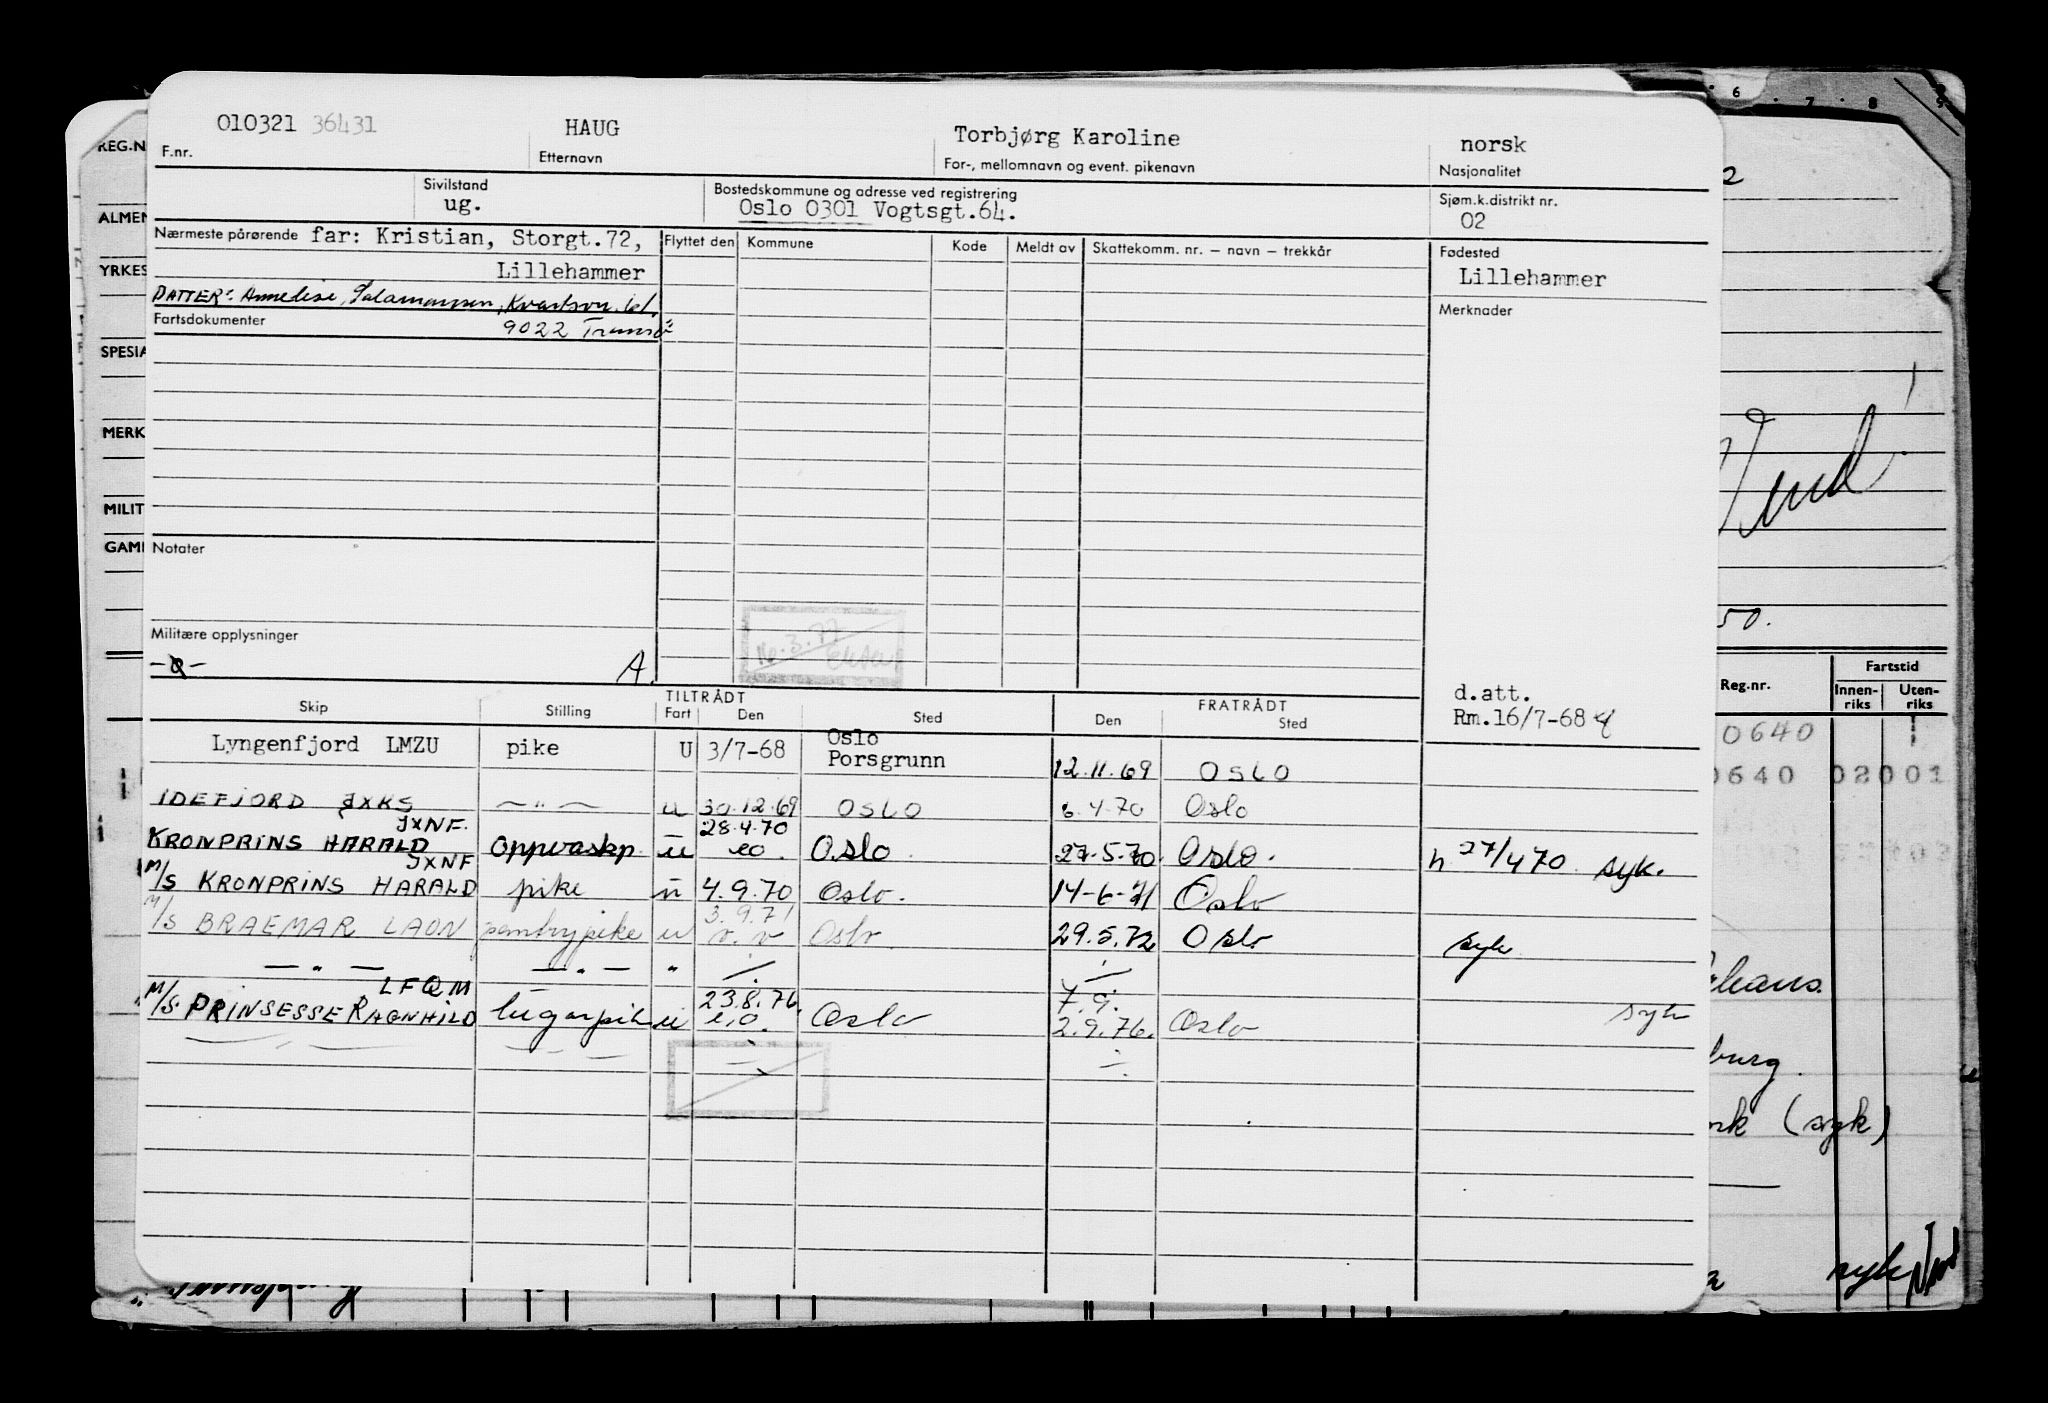 010321 36431 HAUG Torbjørg Karoline norsk
F.nr. Etternavn For-, mellomnavn og event. pikenavn Nasjonalitet
Sivilstand Bostedskommune og adresse ved registrering Sjøm.k.distrikt nr.
ug. Oslo 0301 Vogtsgt.64. 02
Nærmeste pårørende far: Kristian, Storgt.72, Flyttet den Kommune Kode Meldt av Skattekomm. nr. – navn – trekkår Fødested
Lillehammer Lillehammer
DATTER: Annelise, Salamonsen,
Fartsdokumenter 9022 Tromsø Merknader
Notater
Militære opplysninger
A.
TILTRÅDT FRATRÅDT d.att.
Skip Stilling Fart Den Sted Den Sted Rm.16/7-68
Lyngenfjord LMZU pike U 3/7-68 Oslo
Porsgrunn 12.11.69 OSLO
IDEFJORD JXKS — " — u 30.12.69 OSLO 6.4.70 Oslo
JXNF. 28.4.70
KRONPRINS HARALD oppvaskp u eo. Oslo. 27.5.70. Oslo. h 27/470 syk.
JXNF
M/S KRONPRINS HARALD pike u 4.9.70 Oslo. 14-6-71 Oslo
3.9.71
M/S BRAEMAR LAON pentrypike u Oslo 29.5.72 Oslo syk
— " — — " — " ·/. ·/.
LFQM 23.8.76. 7.9.
M/S. PRINSESSE RAGNHILD lugarpik u e.o. Oslo 2.9.76. Oslo syk
REG.N
ALMEN
YRKES
SPESIA
MERK
MILIT
GAM
6 7 8
50.
Reg.nr. Fartstid
Innen-riks Uten-riks
0640 1
0640 02001
burg.
(syk)
syk